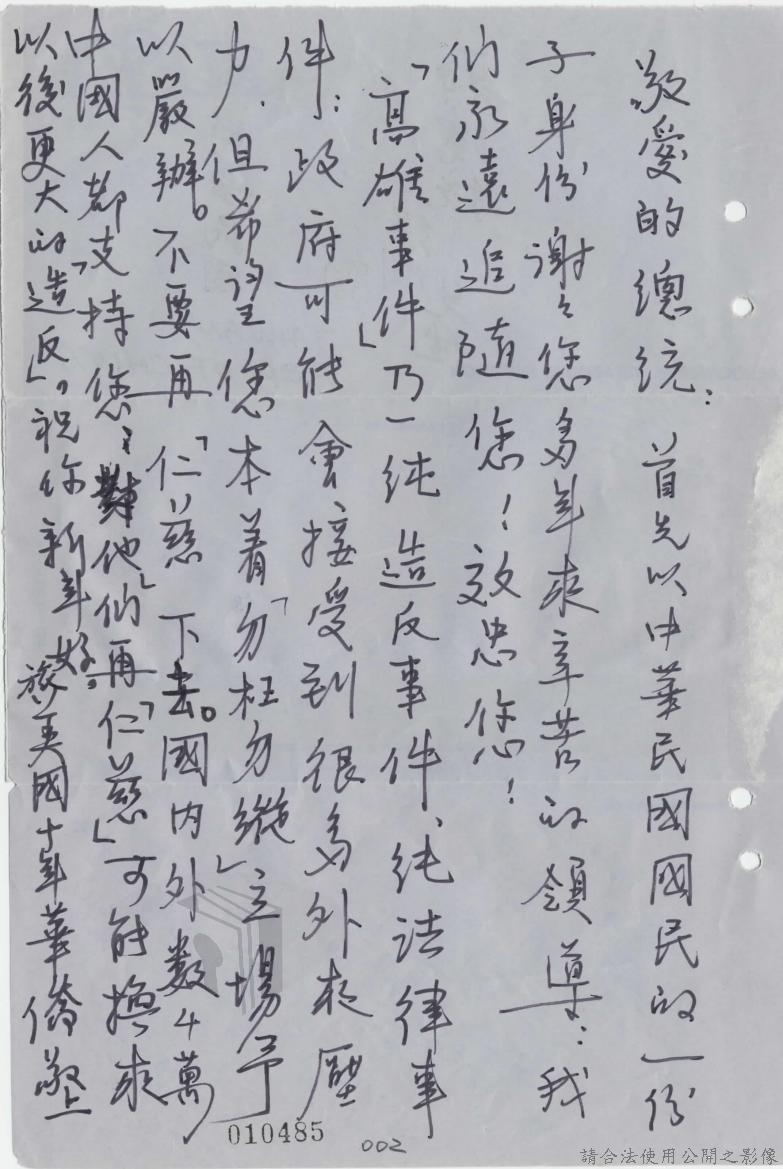 敬愛的總統：首先以中華民國國民的一份
子身份謝々您多年來辛苦的領導：我
們永遠追隨您！效忠您！
「高雄事件」乃一純造反事件、純法律事
件：政府可能會接受到很多外來壓
力．但希望您本着「勿枉勿縱」立場予
以嚴辦。不要再「仁慈」下去。國內外數千萬
中國人都「支持您」：對他們再「仁慈」可能換來
以後更大的造反」。祝你新年好。
旅美國十年華僑敬上
010485
002
請合法使用公開之影像